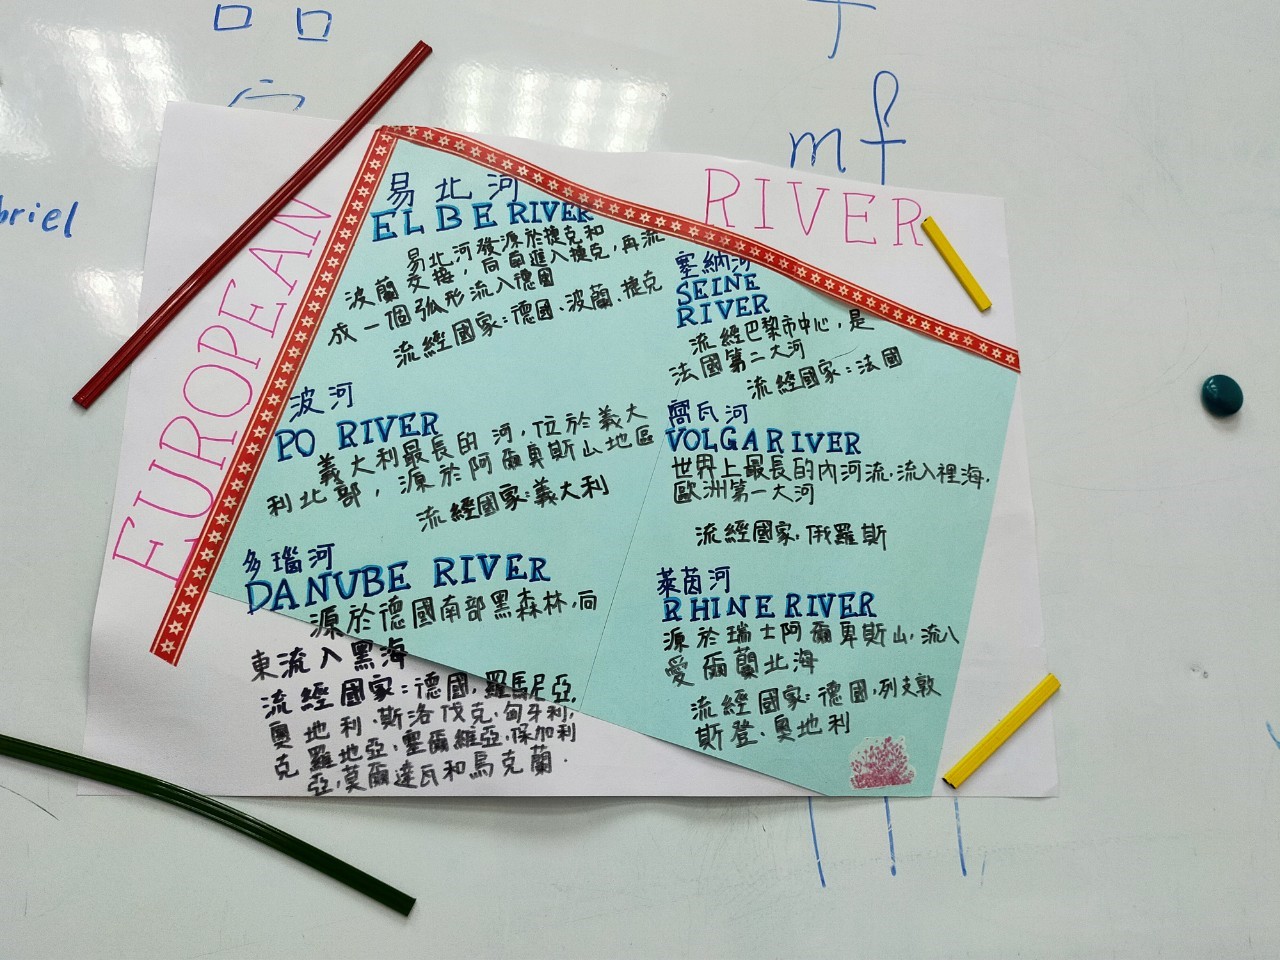 EUROPEAN
RIVER
mf
briel
易北河
ELBE RIVER
易北河發源於捷克和
波蘭交接，向南進入捷克，再流
成一個弧形流入德國
流經國家：德國、波蘭、捷克
波河
PO RIVER
義大利最長的河，位於義大
利北部，源於阿爾卑斯山地區
流經國家：義大利
多瑙河
DANUBE RIVER
源於德國南部黑森林，向
東流入黑海
流經國家：德國，羅馬尼亞，
奧地利．斯洛伐克．匈牙利，
克羅地亞，塞爾維亞，保加利
亞，莫爾達瓦和烏克蘭．
塞納河
SEINE
RIVER
流經巴黎市中心，是
法國第二大河
流經國家：法國
窩瓦河
VOLGA RIVER
世界上最長的內河流，流入裡海，
歐洲第一大河
流經國家．俄羅斯
萊茵河
RHINE RIVER
源於瑞士阿爾卑斯山，流入
愛爾蘭北海
流經國家：德國，列支敦
斯登．奧地利